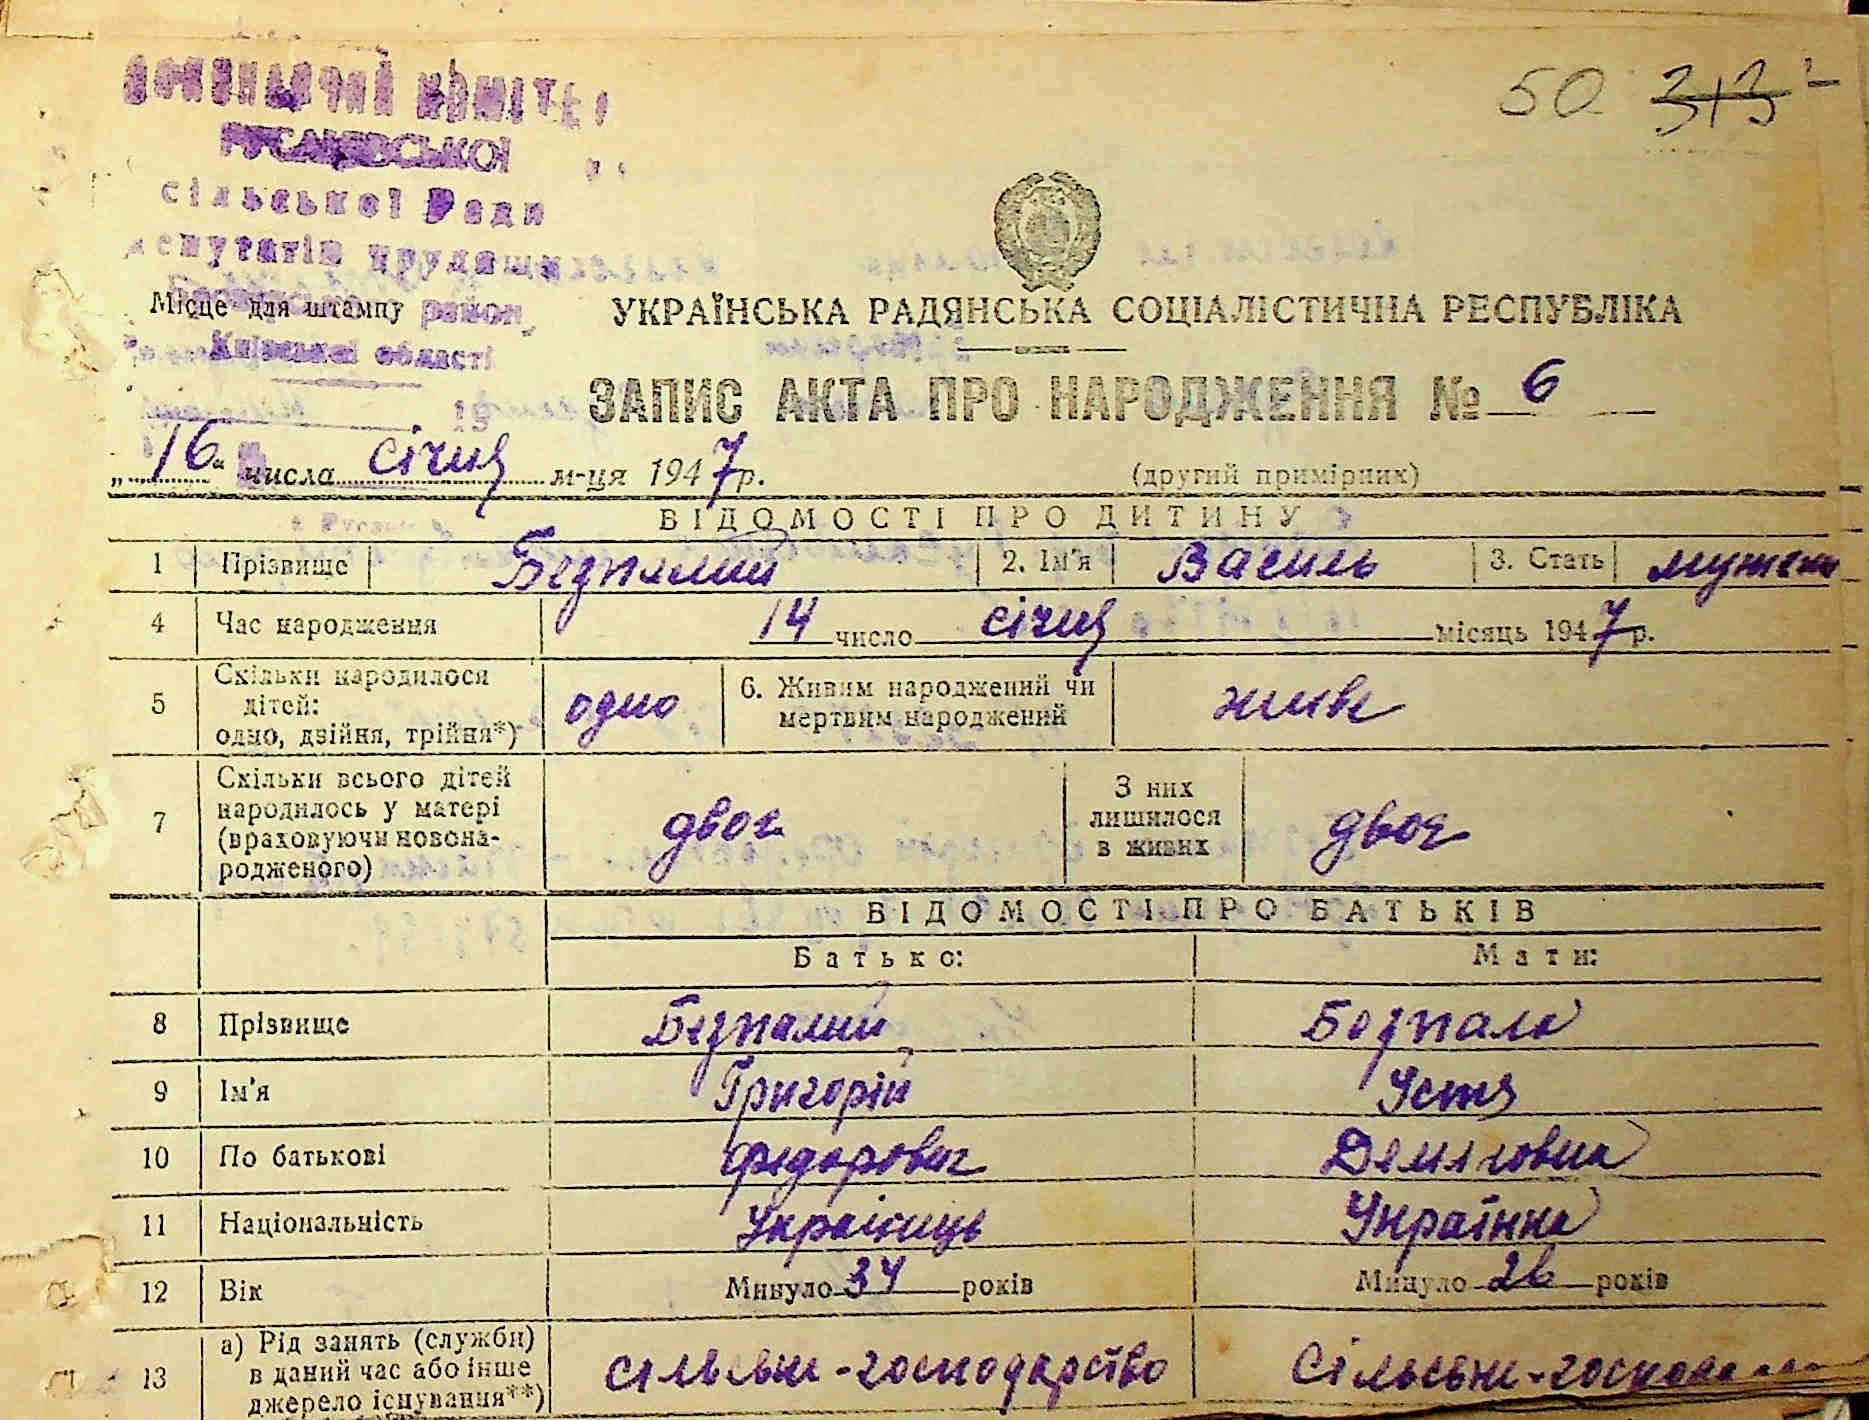 50 313
ВИКОНАВЧИЙ КОМІТЕТ
РУСАНІВСЬКОЇ
сільської Ради
депутатів трудящих
Місце для штампу район
Київської області
УКРАЇНСЬКА РАДЯНСЬКА СОЦІАЛІСТИЧНА РЕСПУБЛІКА
ЗАПИС АКТА ПРО НАРОДЖЕННЯ № 6
„16“ числа січня м-ця 1947 р. (другий примірник)
ВІДОМОСТІ ПРО ДИТИНУ
1 Прізвище Безпалий 2. Ім'я Василь 3. Стать мужеськ
4 Час народження 14 число січня місяць 1947 р.
5 Скільки народилося дітей: одно, двійня, трійня*) одно 6. Живим народжений чи мертвим народжений живе
7 Скільки всього дітей народилось у матері (враховуючи новонародженого) двоє З них лишилося в живих двоє
ВІДОМОСТІ ПРО БАТЬКІВ
Батько: Мати:
8 Прізвище Безпалий Безпала
9 Ім'я Григорій Устя
10 По батькові Федорович Демяговна
11 Національність Українець Українка
12 Вік Минуло 34 років Минуло 26 років
13 а) Рід занять (служби) в даний час або інше джерело існування**) Сільське-господарство Сільське-господа